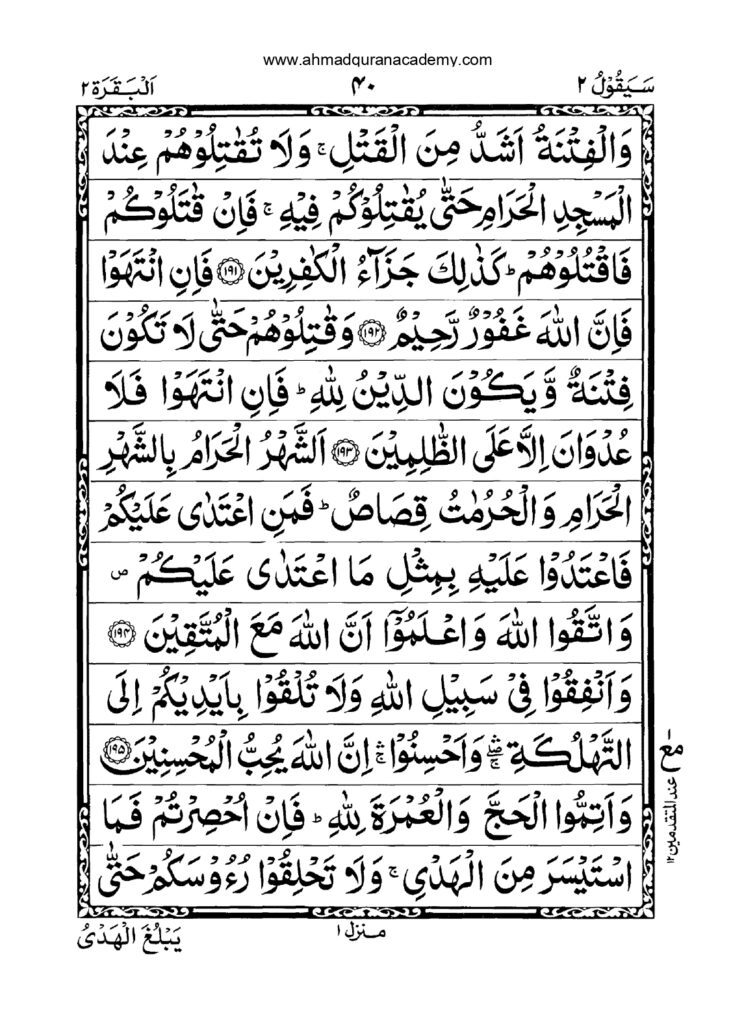 www.ahmadquranacademy.com
سَيَقُوۡلُ ۲ ۴۰ اَلۡبَقَرَة ۲
وَالۡفِتۡنَةُ اَشَدُّ مِنَ الۡقَتۡلِۚ وَلَا تُقٰتِلُوۡهُمۡ عِنۡدَ
الۡمَسۡجِدِ الۡحَرَامِ حَتّٰى يُقٰتِلُوۡكُمۡ فِيۡهِۚ فَاِنۡ قٰتَلُوۡكُمۡ
فَاقۡتُلُوۡهُمۡؕ كَذٰلِكَ جَزَآءُ الۡكٰفِرِيۡنَ ﴿۱۹۱﴾ فَاِنِ انۡتَهَوۡا
فَاِنَّ اللّٰهَ غَفُوۡرٌ رَّحِيۡمٌ ﴿۱۹۲﴾ وَقٰتِلُوۡهُمۡ حَتّٰى لَا تَكُوۡنَ
فِتۡنَةٌ وَّيَكُوۡنَ الدِّيۡنُ لِلّٰهِؕ فَاِنِ انۡتَهَوۡا فَلَا
عُدۡوَانَ اِلَّا عَلَى الظّٰلِمِيۡنَ ﴿۱۹۳﴾ اَلشَّهۡرُ الۡحَرَامُ بِالشَّهۡرِ
الۡحَرَامِ وَالۡحُرُمٰتُ قِصَاصٌؕ فَمَنِ اعۡتَدٰى عَلَيۡكُمۡ
فَاعۡتَدُوۡا عَلَيۡهِ بِمِثۡلِ مَا اعۡتَدٰى عَلَيۡكُمۡ ص
وَاتَّقُوا اللّٰهَ وَاعۡلَمُوۡٓا اَنَّ اللّٰهَ مَعَ الۡمُتَّقِيۡنَ ﴿۱۹۴﴾
وَاَنۡفِقُوۡا فِىۡ سَبِيۡلِ اللّٰهِ وَلَا تُلۡقُوۡا بِاَيۡدِيۡكُمۡ اِلَى
التَّهۡلُكَةِ ۛۖۚ وَاَحۡسِنُوۡا ۛۚ اِنَّ اللّٰهَ يُحِبُّ الۡمُحۡسِنِيۡنَ ﴿۱۹۵﴾
وَاَتِمُّوا الۡحَجَّ وَالۡعُمۡرَةَ لِلّٰهِؕ فَاِنۡ اُحۡصِرۡتُمۡ فَمَا
اسۡتَيۡسَرَ مِنَ الۡهَدۡىِۚ وَلَا تَحۡلِقُوۡا رُءُوۡسَكُمۡ حَتّٰى
مع
عند المتقدمین ۱۲
منزل ۱
يَبۡلُغَ الۡهَدۡىُ